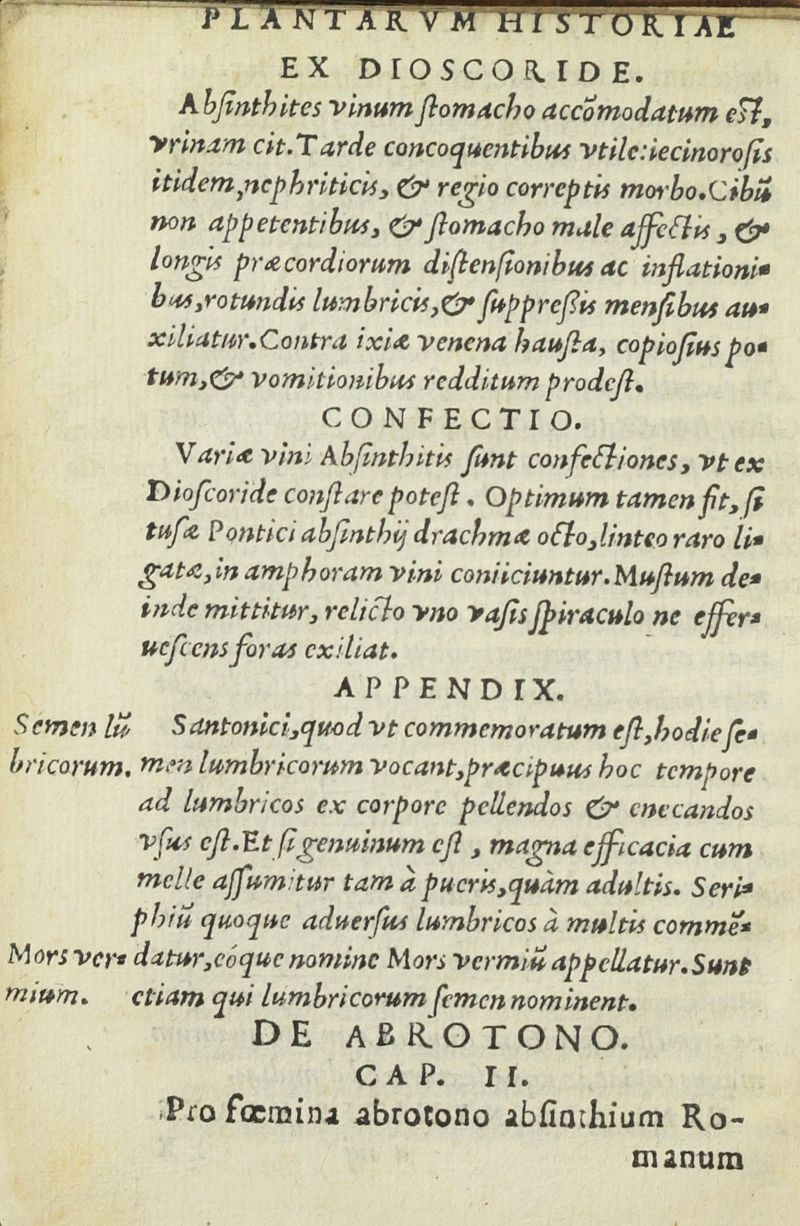 PLANTARVM HISTORIAE
EX DIOSCORIDE.
Abſinthites vinum ſtomacho accõmodatum eſt,
vrinam cit. Tarde concoquentibus vtile: iecinoroſis
itidem, nephriticis, & regio correptis morbo. Cibũ
non appetentibus, & ſtomacho male affectis, &
longis præcordiorum diſtenſionibus ac inflationi-
bus, rotundis lumbricis, & ſuppreſſis menſibus au-
xiliatur. Contra ixiæ venena hauſta, copioſius po-
tum, & vomitionibus redditum prodeſt.
CONFECTIO.
Variæ vini Abſinthitis ſunt confectiones, vt ex
Dioſcoride conſtare poteſt. Optimum tamen fit, ſi
tuſæ Pontici abſinthij drachmæ octo, linteo raro li-
gatæ, in amphoram vini coniiciuntur. Muſtum de-
inde mittitur, relicto vno vaſis ſpiraculo ne effer-
ueſcens foras exiliat.
APPENDIX.
Semen lũ
bricorum.
Santonici, quod vt commemoratum eſt, hodie ſe-
men lumbricorum vocant, præcipuus hoc tempore
ad lumbricos ex corpore pellendos & enecandos
vſus eſt. Et ſi genuinum eſt, magna efficacia cum
melle aſſumitur tam à pueris, quàm adultis. Seri-
phiũ quoque aduerſus lumbricos à multis commẽ-
Mors ver-
mium.
datur, eóque nomine Mors vermiũ appellatur. Sunt
etiam qui lumbricorum ſemen nominent.
DE ABROTONO.
CAP. II.
Pro fœmina abrotono abſinthium Ro-
manum